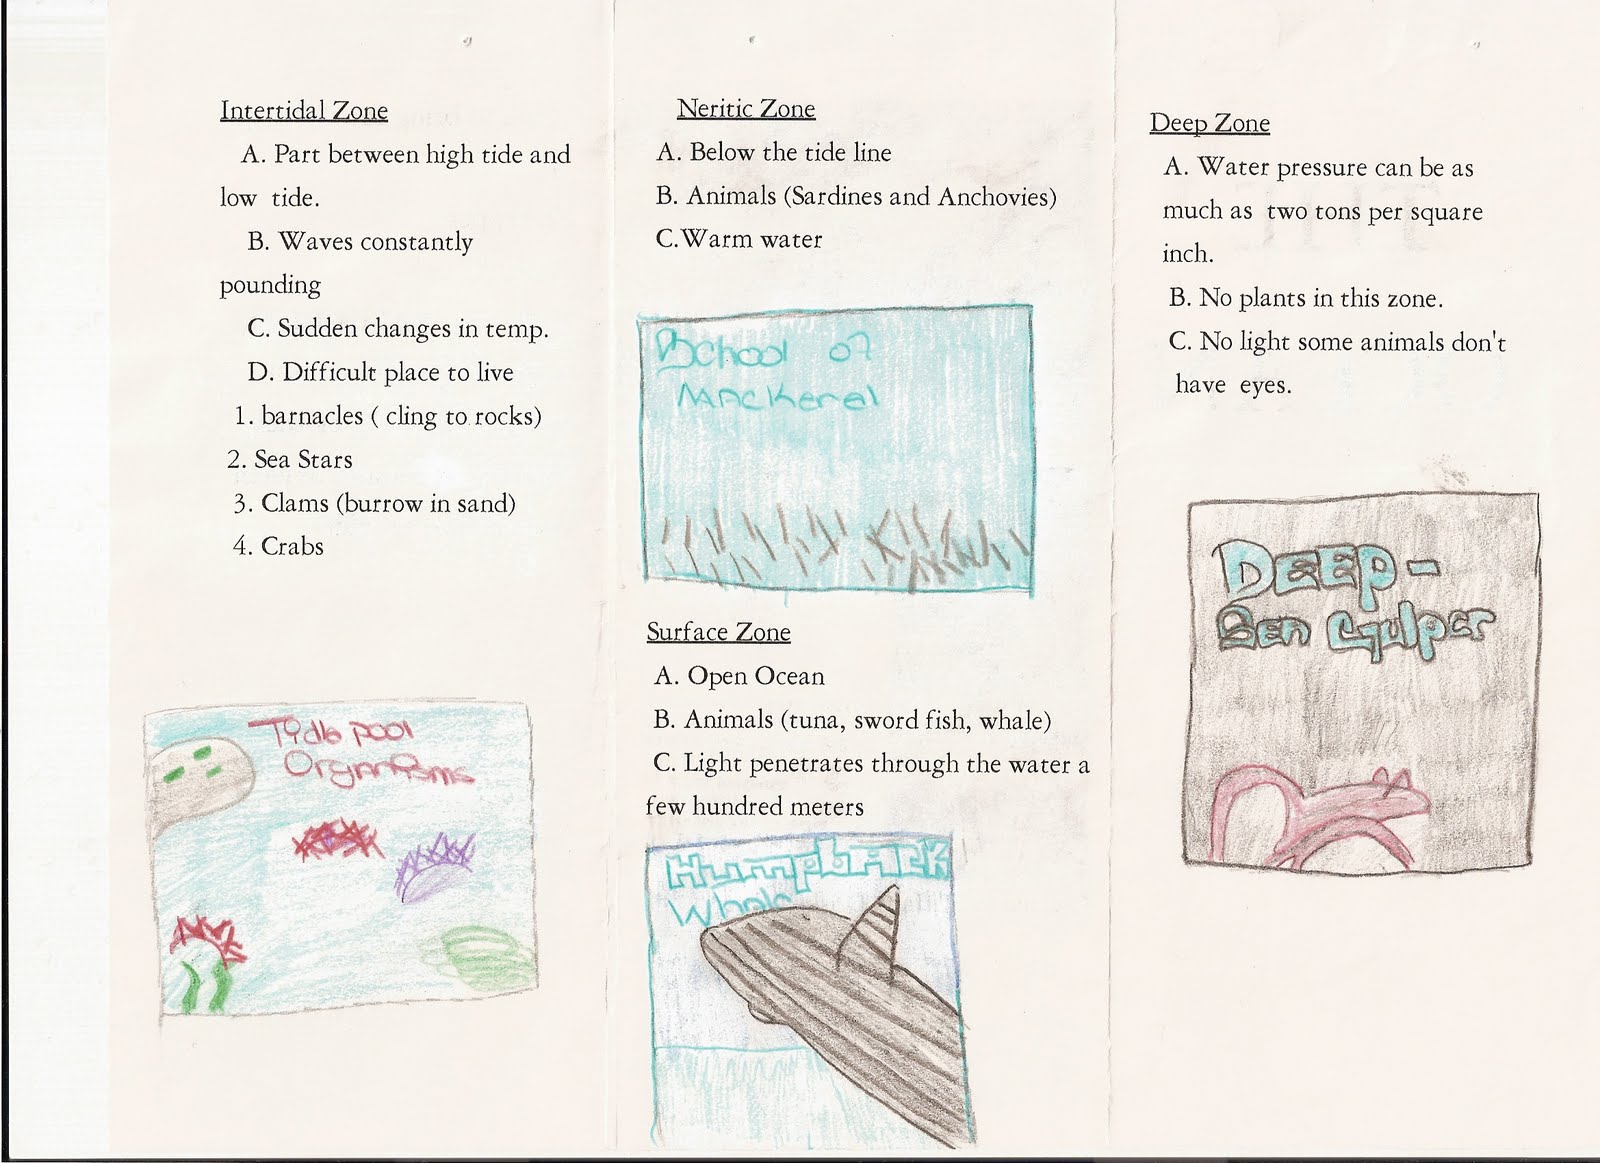 Intertidal Zone
A. Part between high tide and
low tide.
B. Waves constantly
pounding
C. Sudden changes in temp.
D. Difficult place to live
1. barnacles ( cling to rocks)
2. Sea Stars
3. Clams (burrow in sand)
4. Crabs
Tidle pool
Organisms
Neritic Zone
A. Below the tide line
B. Animals (Sardines and Anchovies)
C.Warm water
School of
Mackerel
Surface Zone
A. Open Ocean
B. Animals (tuna, sword fish, whale)
C. Light penetrates through the water a
few hundred meters
Humpback
Whale
Deep Zone
A. Water pressure can be as
much as two tons per square
inch.
B. No plants in this zone.
C. No light some animals don't
have eyes.
DEEP-
Sea Gulper